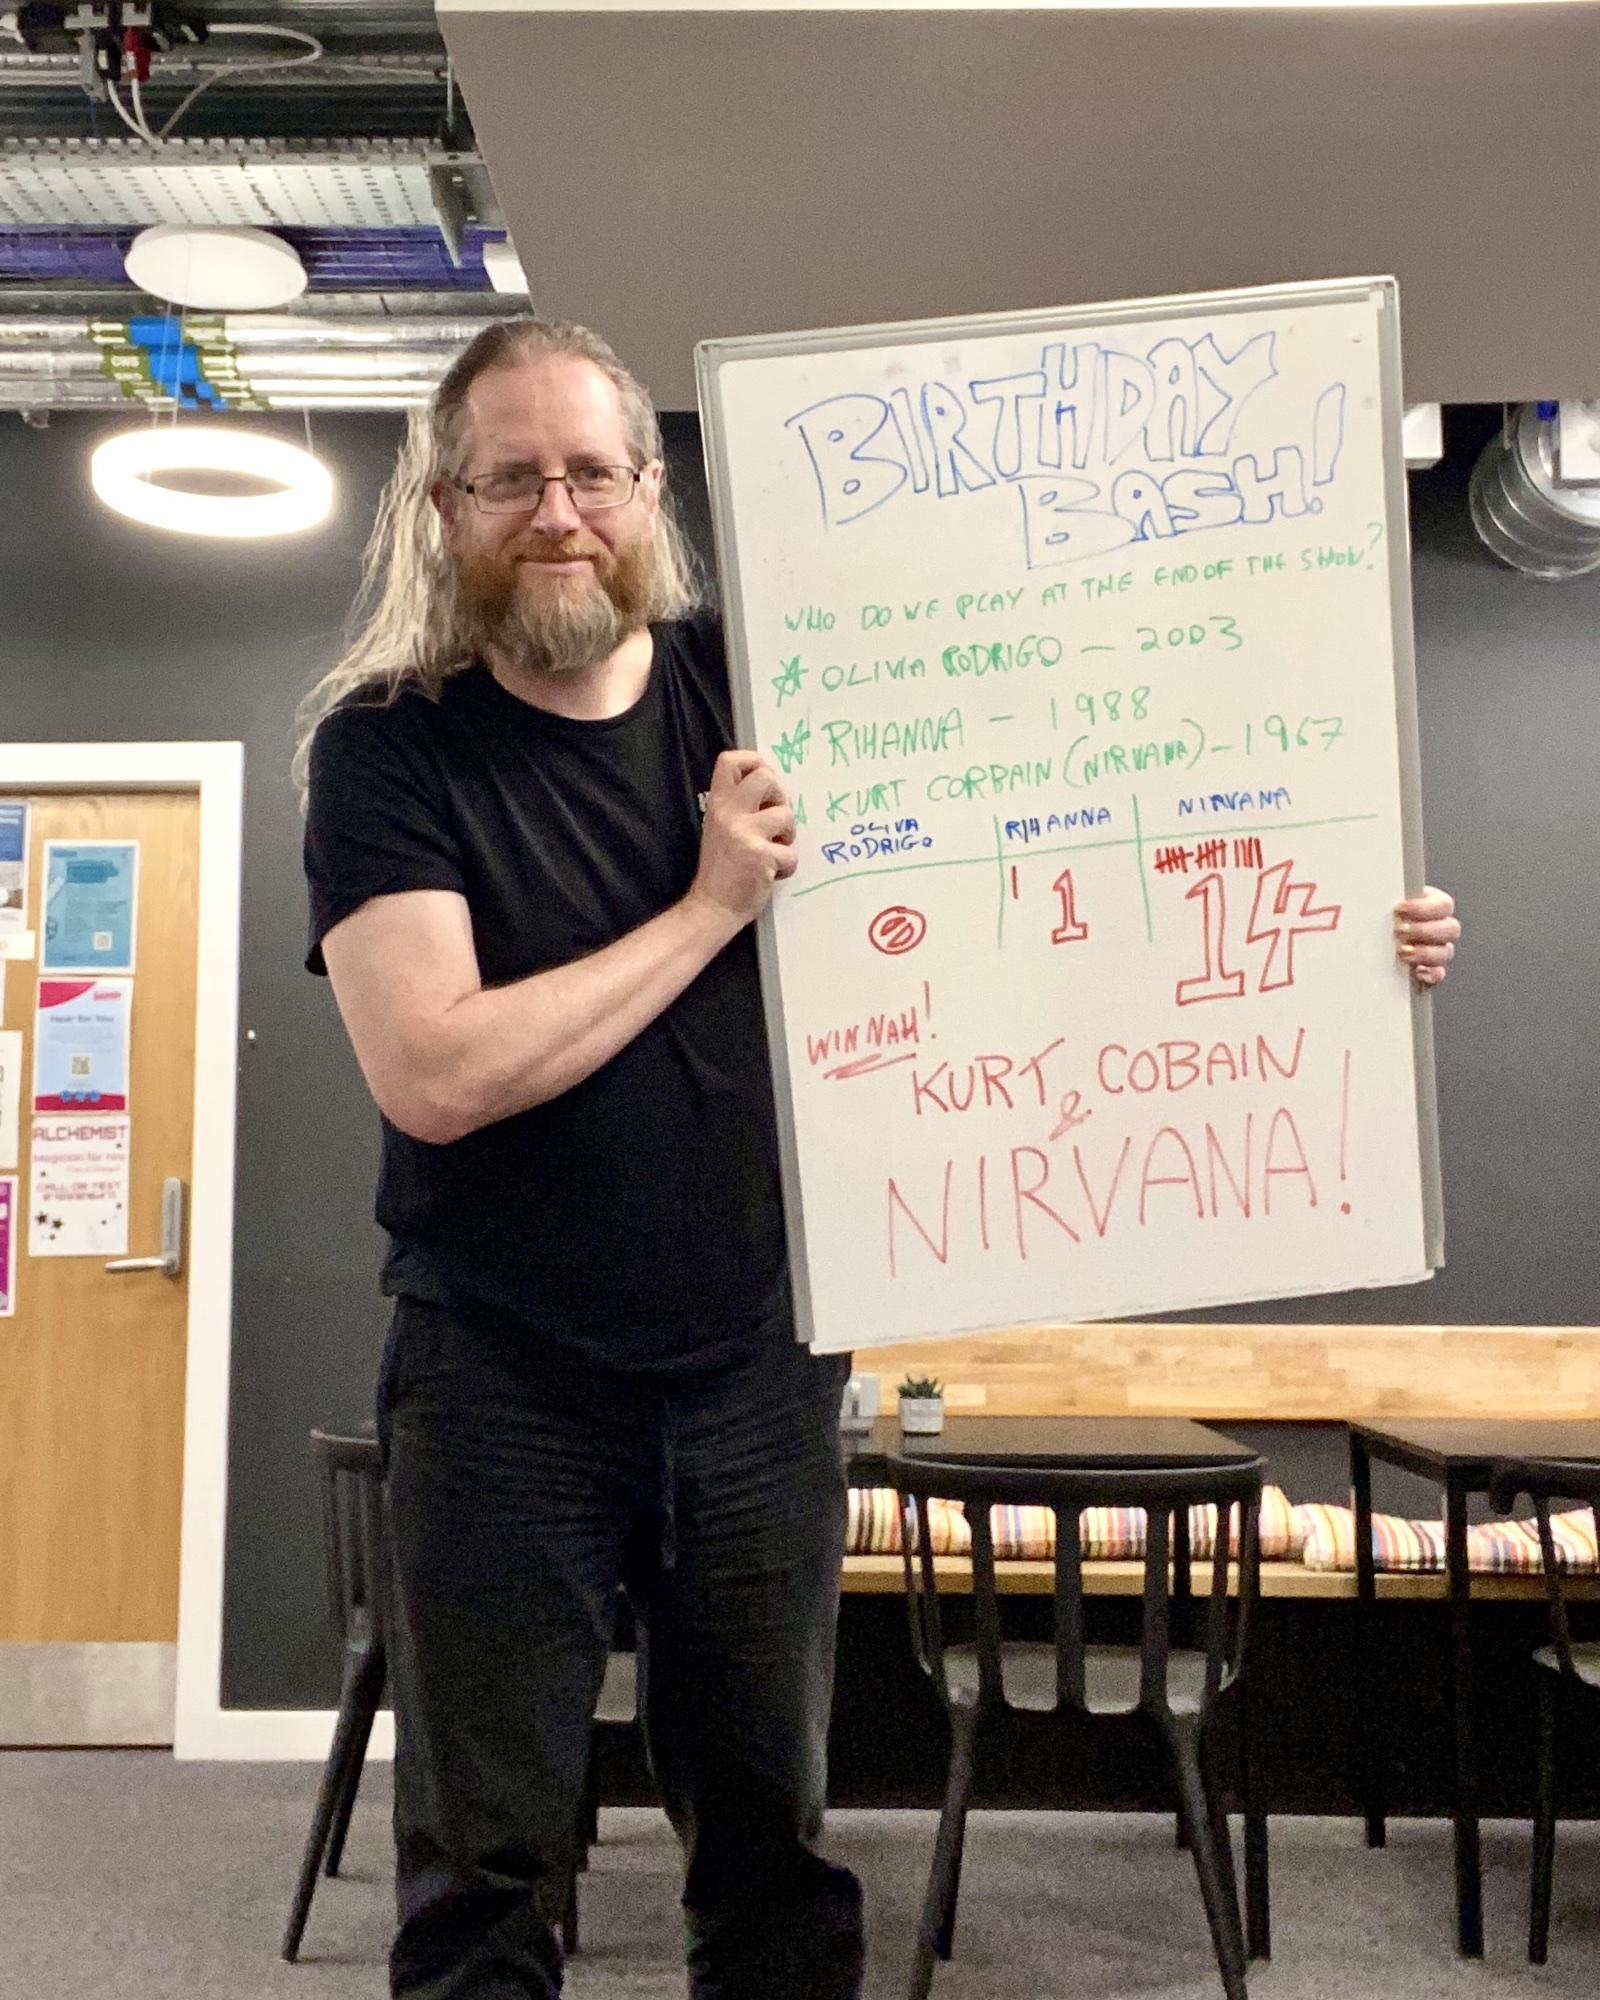 BIRTHDAY
BASH!
WHO DO WE PLAY AT THE END OF THE SHOW?
OLIVIA RODRIGO – 2003
RIHANNA – 1988
KURT CORBAIN (NIRVANA) – 1967
OLIVA
RODRIGO
RIHANNA
NIRVANA
0
1
14
WINNAH!
KURT COBAIN
&
NIRVANA!
ALCHEMIST
Magician for hire
CALL OR TEXT